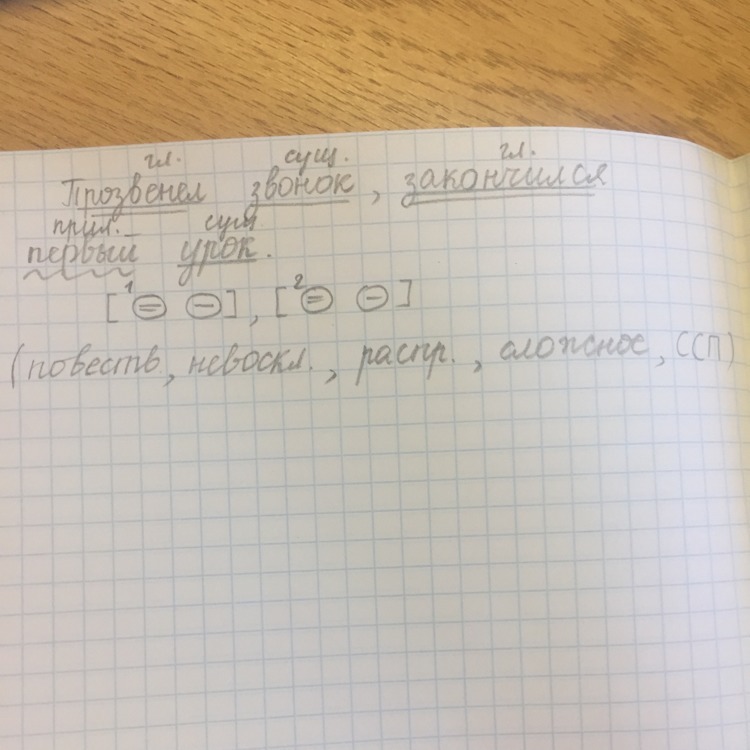 гл. сущ. гл.
Прозвенел звонок, закончился
прил. сущ.
первый урок.
[¹= –], [²= –]
(повеств., невоскл., распр., сложное, ССП)